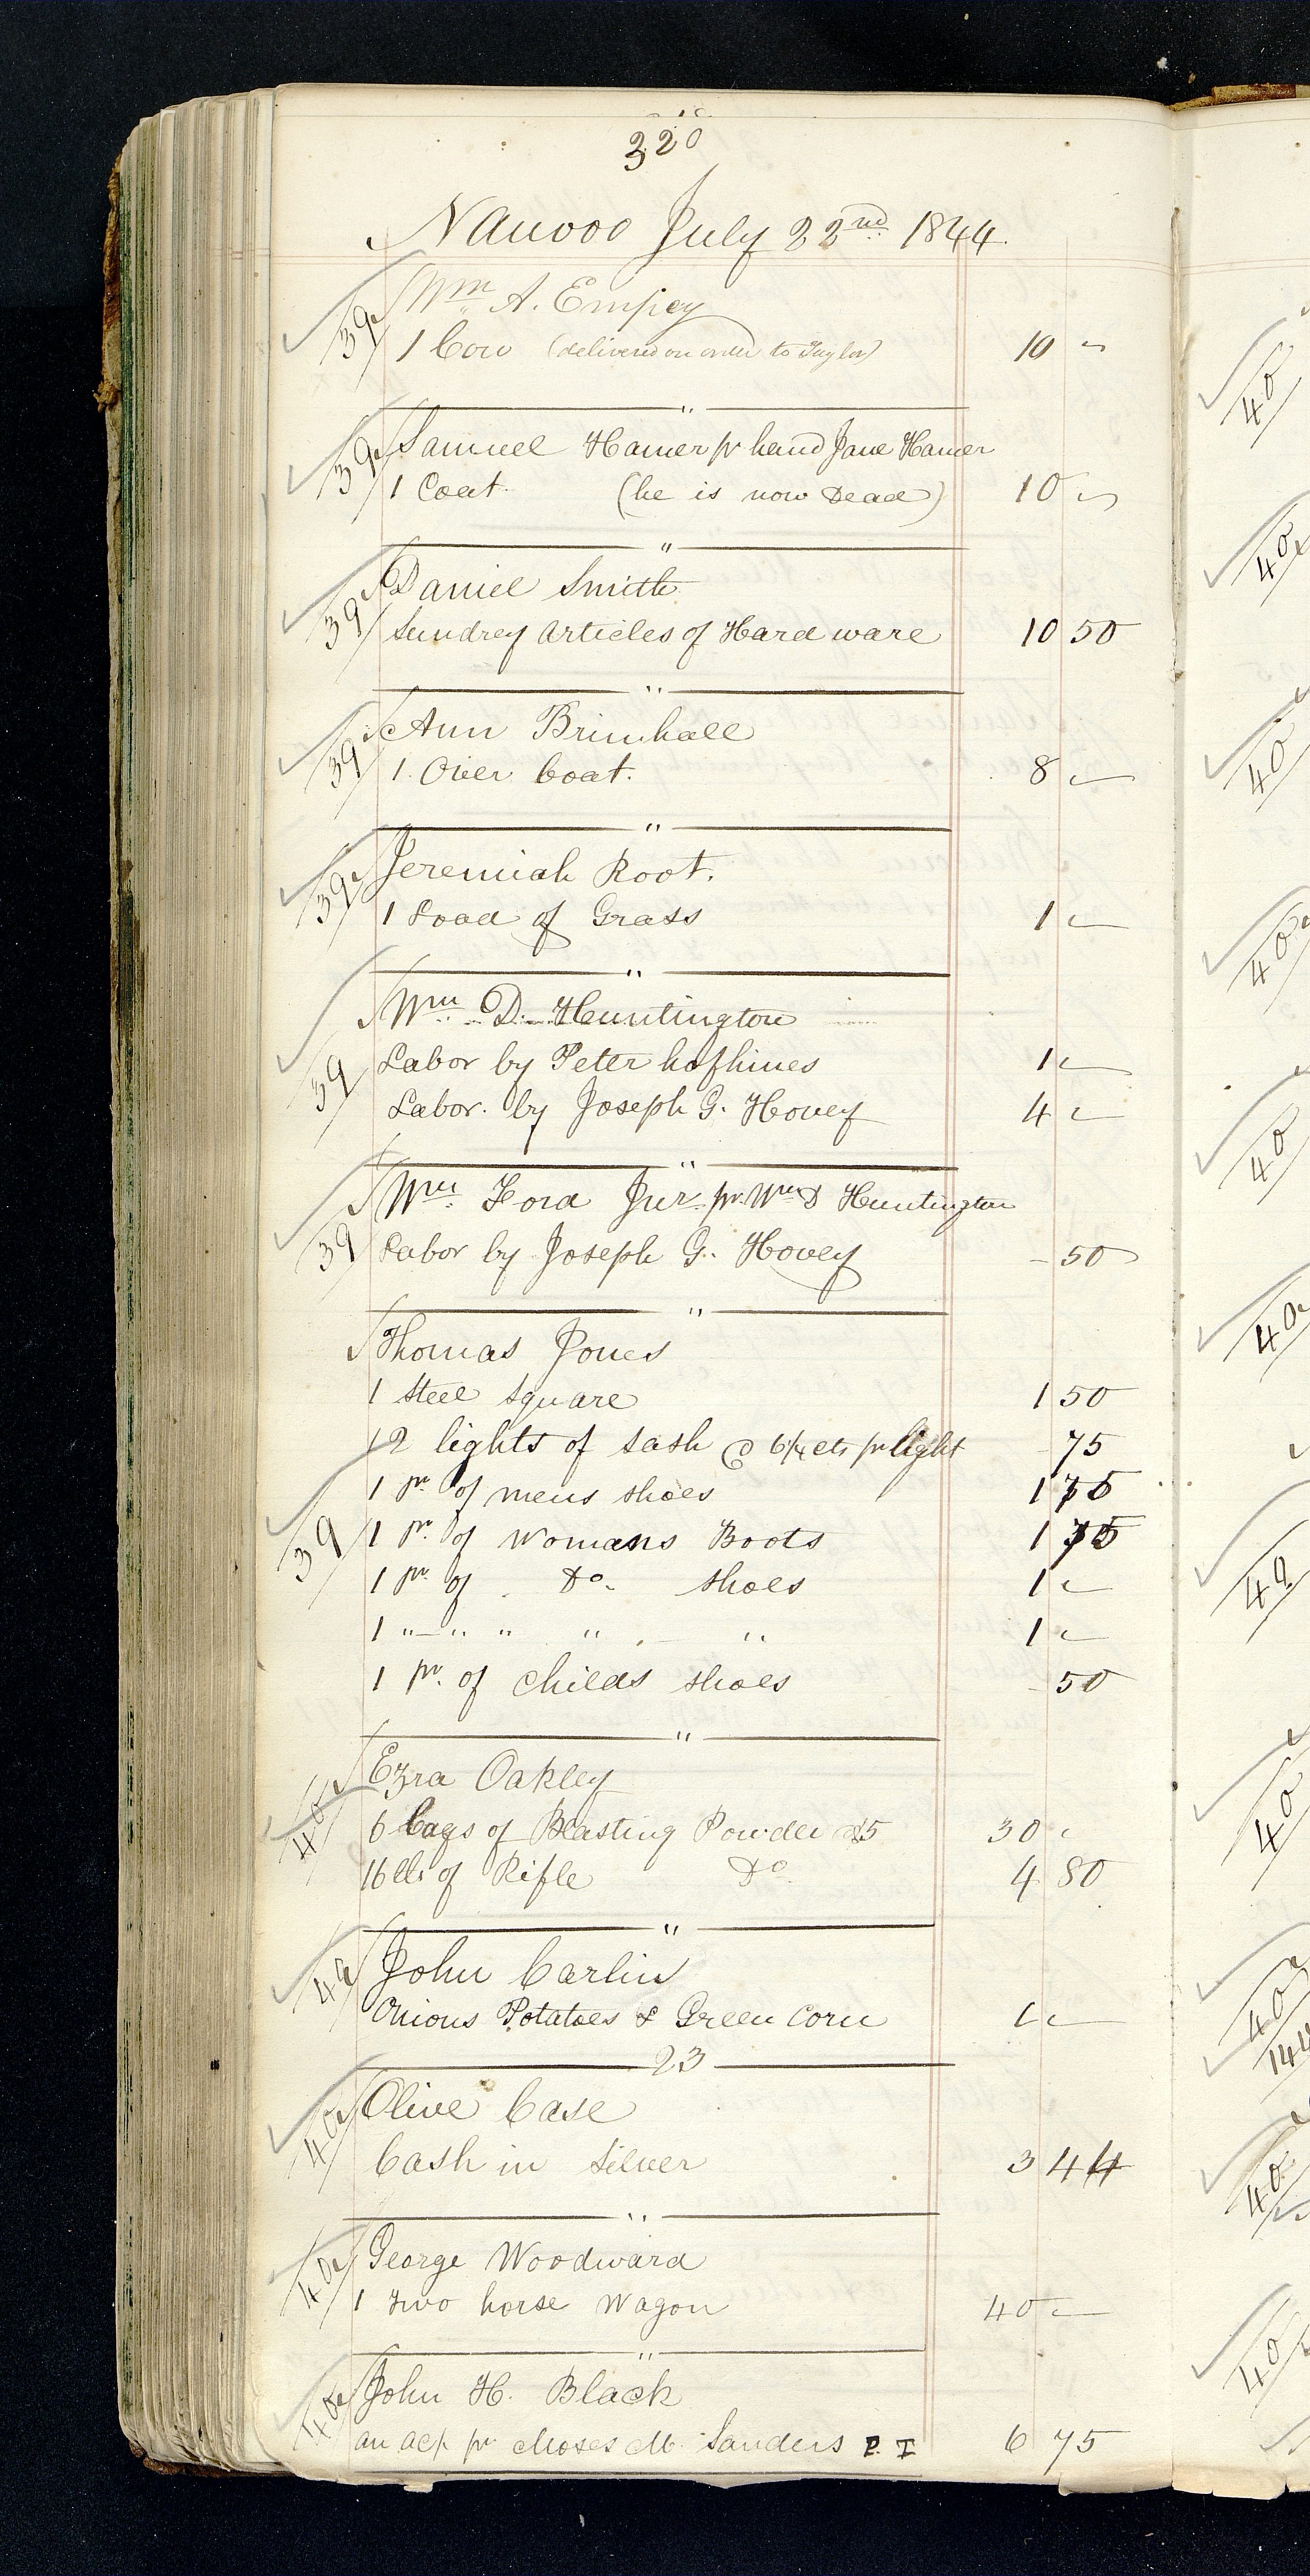 320
Nauvoo July 22nd 1844.
39 Wm A. Empey
1 Cow (delivered on order to Taylor) 10 "
"
39 Samuel Hamer pr hand Jane Hamer
1 Coat (he is now Dead) 10 "
"
39 Daniel Smith
Sundrey articles of Hard ware 10 50
"
39 Ann Brimhall
1 Over Coat. 8 "
"
39 Jeremiah Root.
1 Load of Grass 1 "
"
Wm D. Huntington
39 Labor by Peter hofhines 1 "
Labor. by Joseph G. Hovey 4 "
"
Wm Ford Jur pr Wm D Huntington
39 Labor by Joseph G. Hovey - 50
"
Thomas Jones
1 Steel Square 1 50
12 lights of Sash @ 6/4 cts pr light - 75
1 pr of mens shoes 1 75
39 1 pr. of Womans Boots 1 75
1 pr of Do. shoes 1 "
1 " " " " " 1 "
1 pr. of Childs shoes - 50
"
40 Ezra Oakley
6 Cags of Blasting Powder $5 30 "
16 lbs of Rifle Do 4 80
"
40 John Carlin
Onions Potatoes & Green Corn 1 "
23
40 Olive Case
Cash in Silver 3 44
"
40 George Woodward
1 two horse Wagon 40 "
"
40 John H. Black
an acp pr Moses M. Sanders P. T 6 75
40
40
40
40
40
40
40
40
40
144
40
40